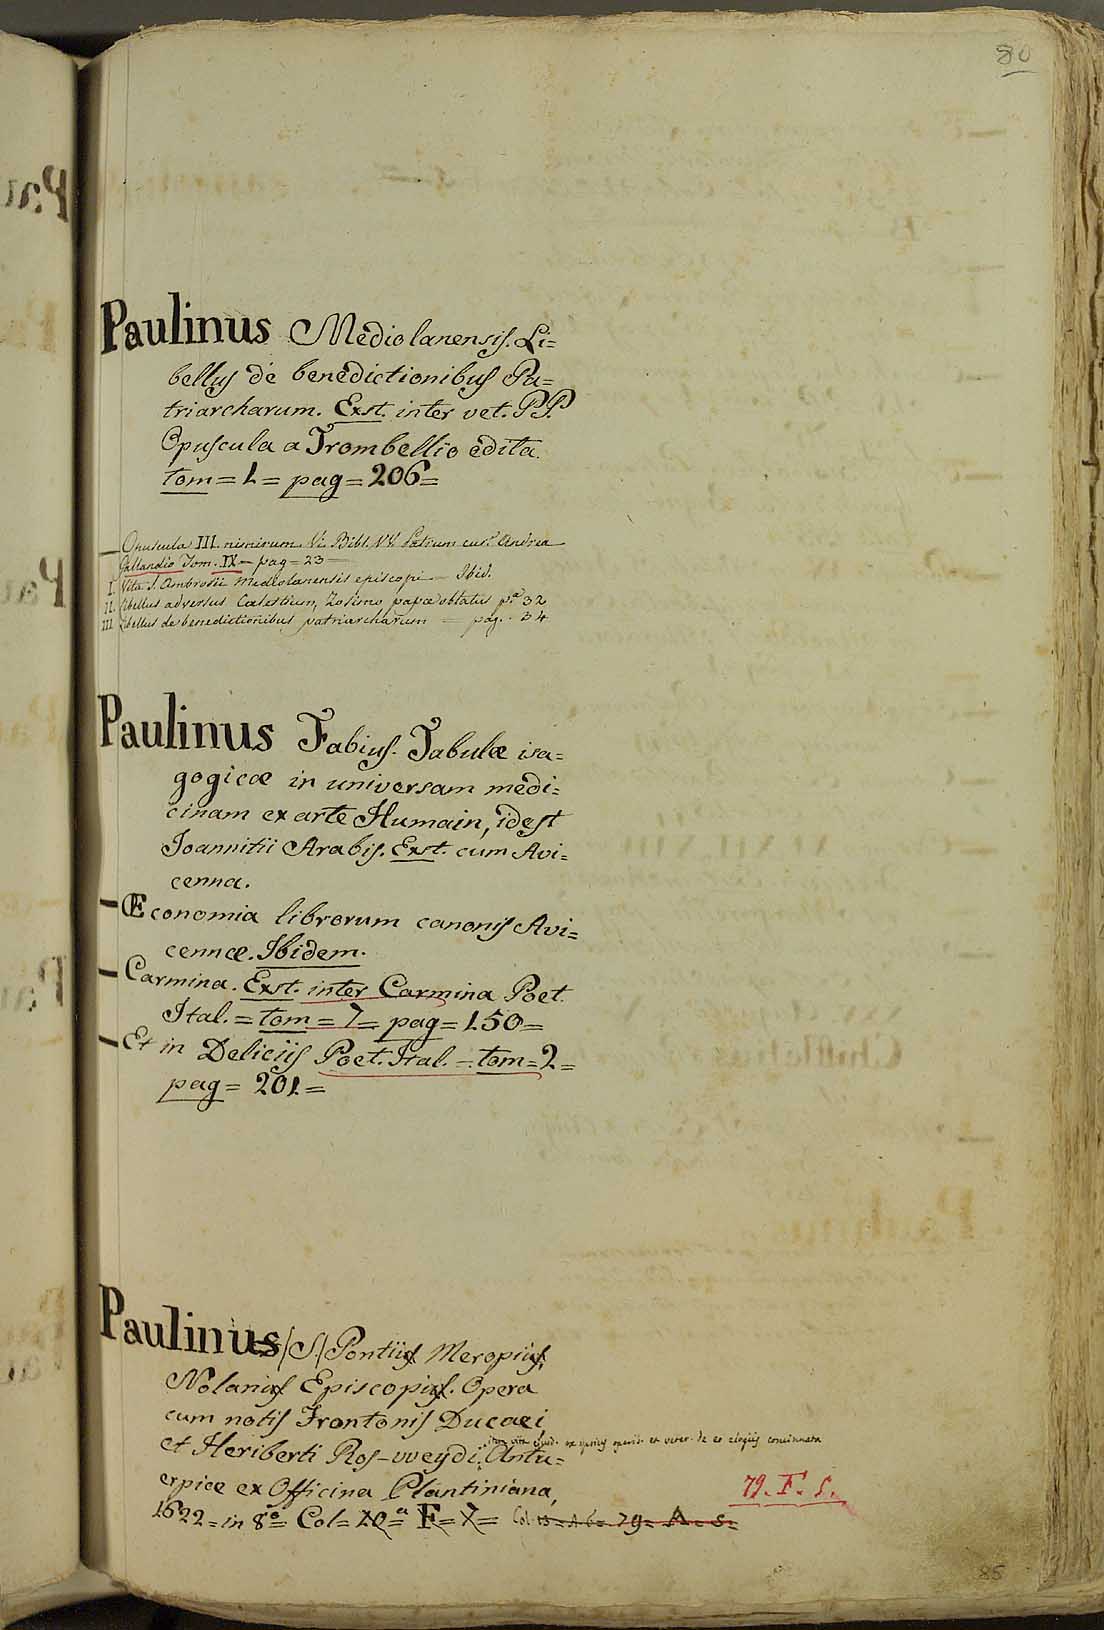 80
Paulinus Mediolanensis. Li=
bellus de benedictionibus Pa=
triarcharum. Exst. inter vet. P.P.
Opuscula a Trombellio edita.
tom = 1 = pag = 206 =
Opuscula III. nimirum. V. Bibl. VV. Patrum cur. Andrea
Gallandio Tom. IX - pag = 23
I. Vita S. Ambrosii Mediolanensis episcopi - Ibid.
II. Libellus adversus Cœlestium, Zosimo papæ oblatus p.ª 32
III. Libellus de benedictionibus patriarcharum = pag. - 34
Paulinus Fabius. Tabulæ isa=
gogicæ in universam medi=
cinam ex arte Humain, idest
Joannitii Arabis. Exst. cum Avi=
cenna.
Œconomia librorum canonis Avi=
cennæ. Ibidem.
Carmina. Exst. inter Carmina Poet.
Ital. = tom = 7 = pag = 150 =
Et in Deliciis Poet. Ital. = tom = 2 =
pag = 201 =
Paulinus /S./ Pontius Meropius,
Nolanus Episcopus. Opera
cum notis Frontonis Ducæi
et Heriberti Ros-vveydi. Antu=
item vita ejusd. ex ipsius operib. et veter. de eo elogiis concinnata
erpiæ ex Officina Plantiniana,
79. F. 5.
1622 = in 8º = Col = 20ª = F = 7 = Col 79 = A = 5 =
85